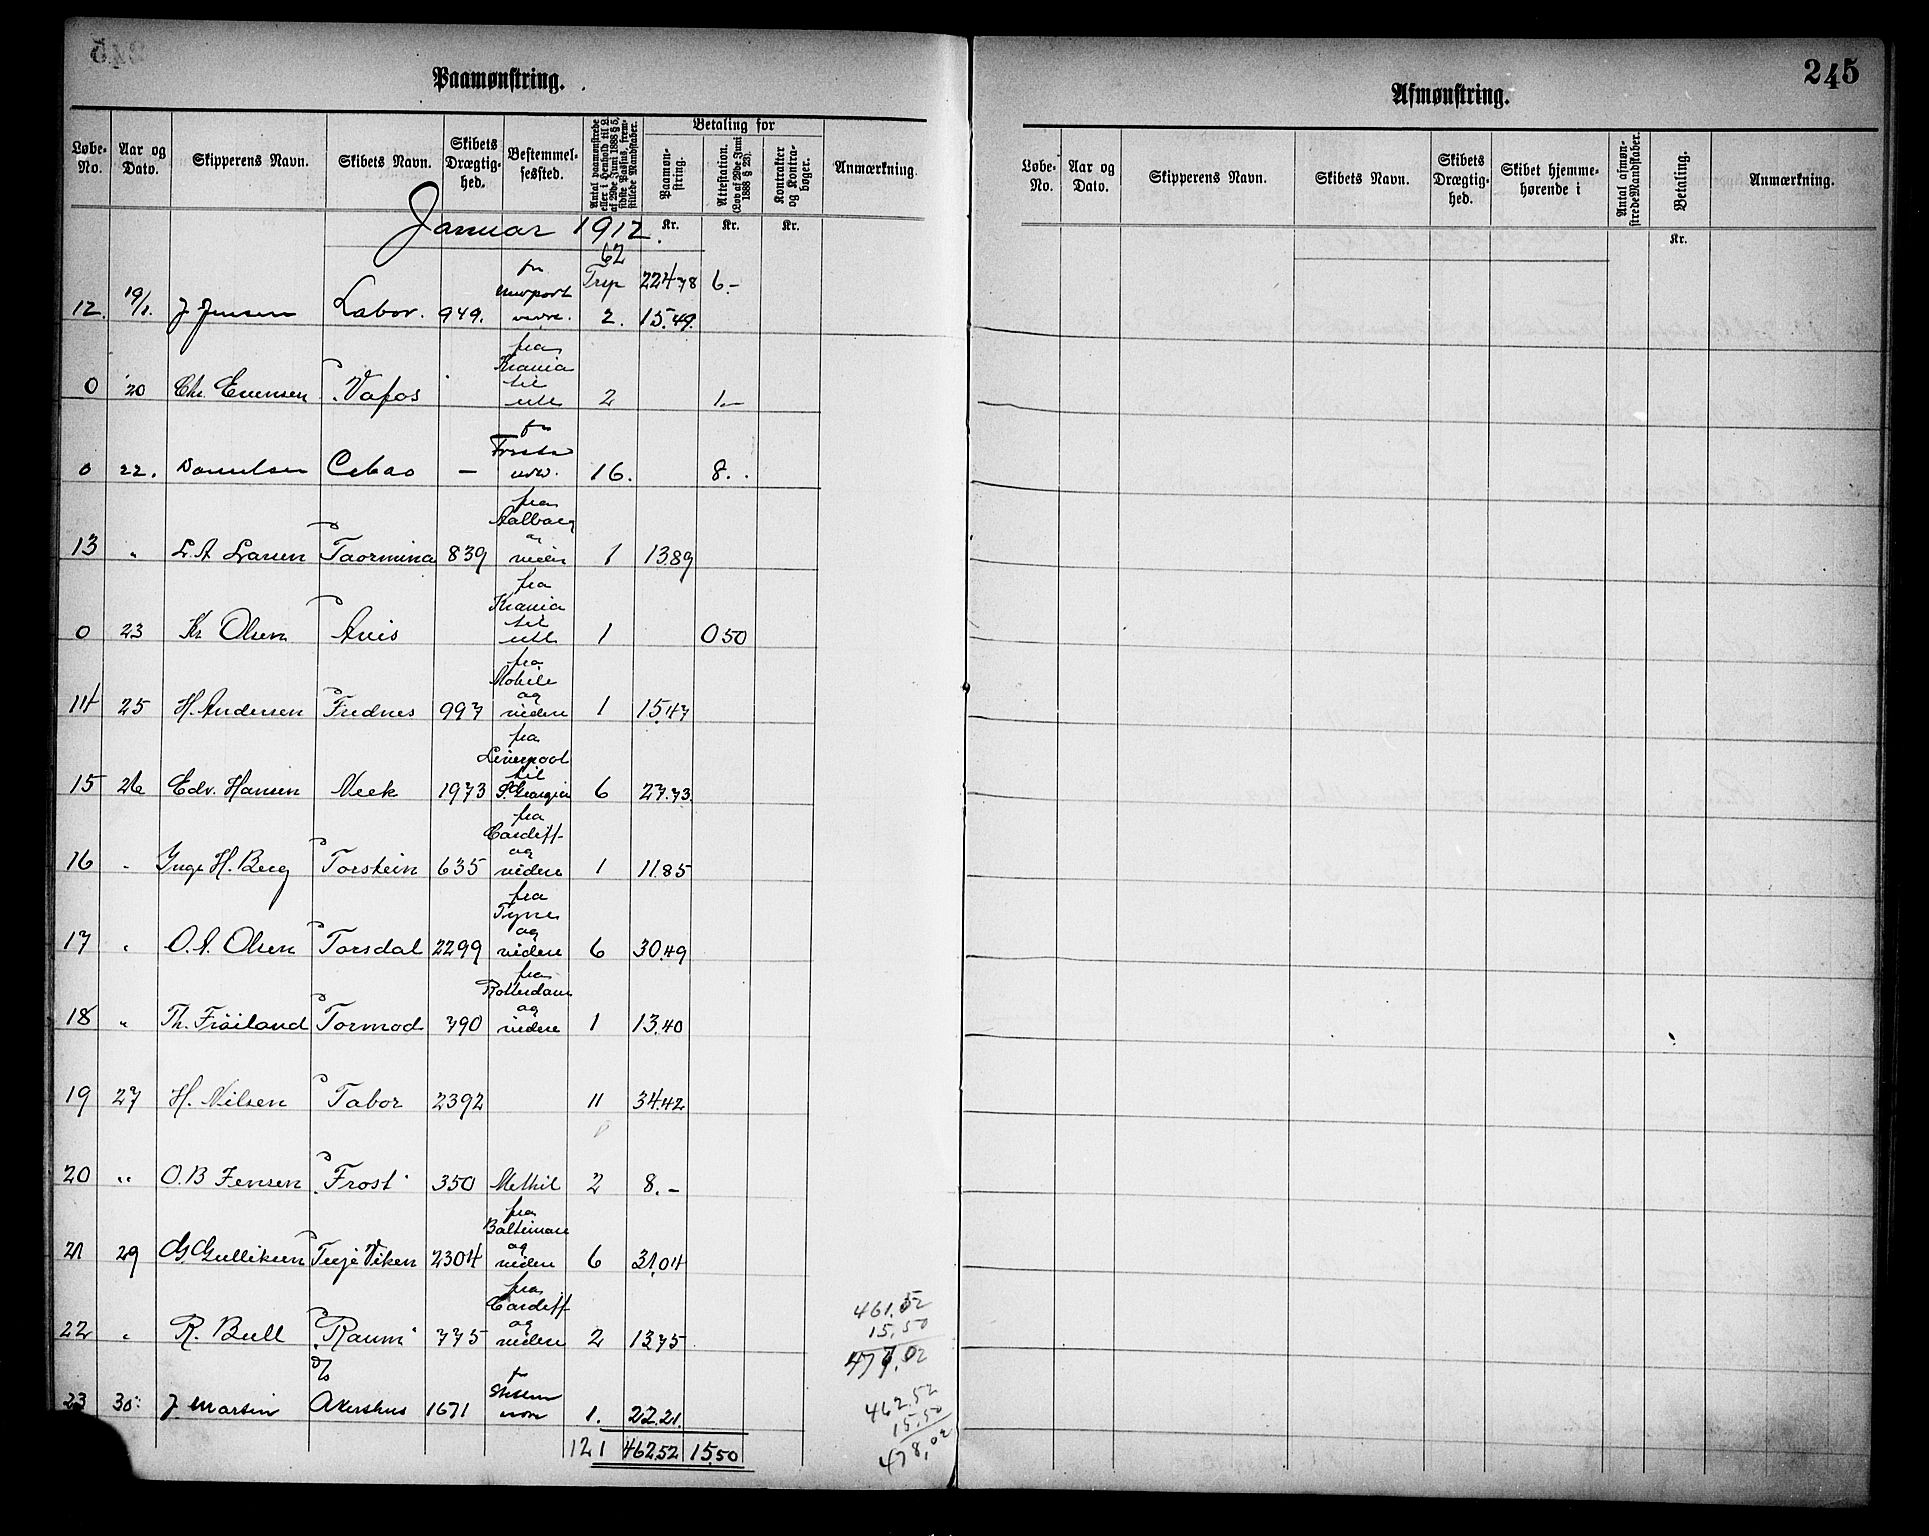 Paamønstring.
Løbe-No. | Aar og Dato. | Skipperens Navn. | Skibets Navn. | Skibets Drægtighed. | Bestemmelsessted. | Antal paamønstrede eller i Henhold til L. af 29de Juni 1888 § 5, sidste Passus, fremstillede Mandskaber. | Betaling for Paamønstring. | Attestation. (Lov af 29de Juni 1888 § 23). | Kontrakter og Kontrabøger. | Anmærkning.
Januar 1912. Kr. Kr. Kr.
62
fra Trsp 22478 6.-
12. 19/1. J Jensen Labor. 949. Newport vidre. 2. 15.49.
0 20 Chr. Evensen Vafos fra Krania til utl 2 1.-
0 22. Danielsen Cebao - 16. 8.
13 " L. A Larsen Taormina 839 fra Aalborg og videre 1 13.89
0 23 Kr Olsen Avis fra Krania til utl 1 0 50
14 25 H. Andersen Frednes 997 fra Mobile og videre 1 15.47
15 26 Edv. Hansen Neek 1973 fra Liverpool til S. Georgia 6 27.73
16 " Inge H. Berg Torstein 635 fra Cardiff og videre 1 11.85
17 " O. A. Olsen Torsdal 2299 fra Tyne og videre 6 30.49
18 " Th. Fröiland Tormod 790 fra Rotterdam og videre 1 13.40
19 27 H. Nilsen Tabor 2392 11 34.42
20 " O. B Jensen Frost 350 Methil 2 8.-
21 29 G. Gulliksen Terje Viken 2304 fra Baltimore og videre 6 31.04
22 " R. Bull Raum 775 fra Cardiff og videre 2 13.75
23 30 J. Martin Akershus 1671 1. 22.21.
121 462.52 15.50
461.52
15.50
477.02
462.52
15.50
478.02
Afmønstring.
245
Løbe-No. | Aar og Dato. | Skipperens Navn. | Skibets Navn. | Skibets Drægtighed. | Skibet hjemmehørende i | Antal afmønstrede Mandskaber. | Betaling. | Anmærkning.
Kr.